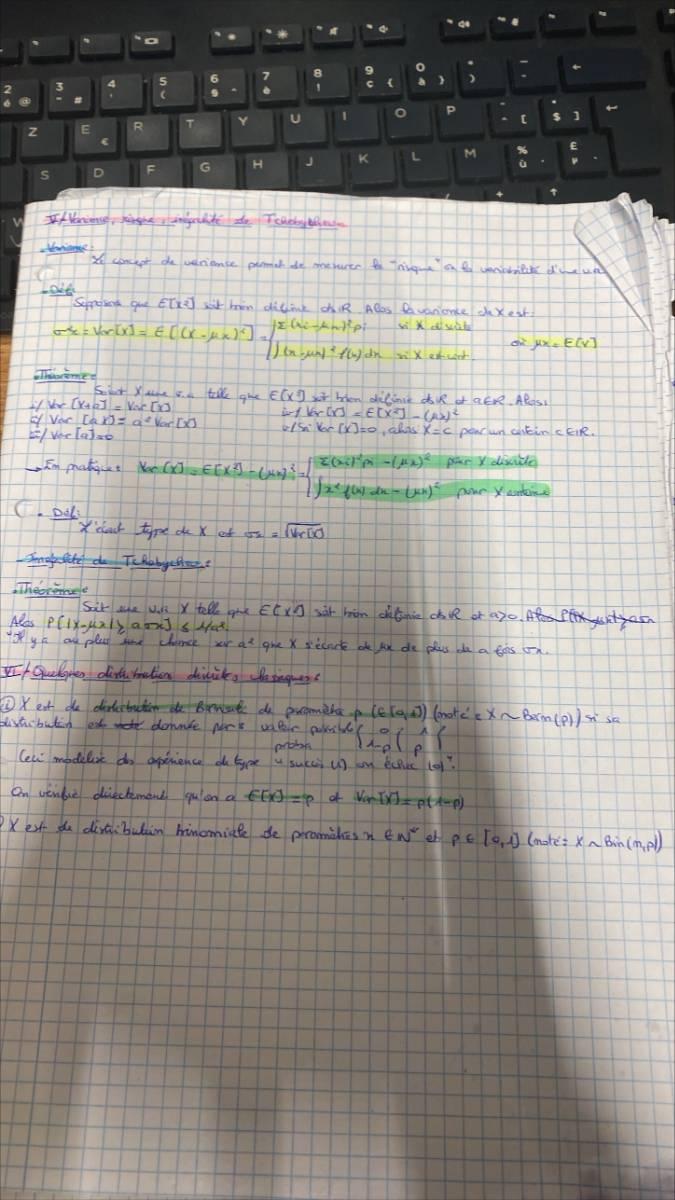 V/ Variance, risque, inégalité de Tchebychev
Variance:
Le concept de variance permet de mesurer le "risque" ou la variabilité d'une v.a
Déf:
Supposons que E[X²] soit bien définie ds R. Alors la variance de X est:
σx² = Var[X] = E[(X-μx)²] = { Σ(xi-μx)² pi si X discrète
où μx = E[X]
∫(x-μx)² f(x) dx si X est cont.
Théorème:
Soient X une v.a telle que E[X²] soit bien définie ds R et a∈R. Alors:
i/ Var [X+a] = Var[X]
iv/ Var[X] = E[X²] - (μx)²
ii/ Var [aX] = a² Var[X]
v/ Si Var[X]=0, alors X=c pour un certain c∈R.
iii/ Var[a]=0
→ En pratique: Var[X] = E[X²] - (μx)² = { Σ(xi)² pi - (μx)² pour X discrète
∫x² f(x) dx - (μx)² pour X continue
Déf:
L'écart type de X est σx = √Var[X]
Inégalité de Tchebychev:
Théorème:
Soit une v.a X telle que E[X²] soit bien définie ds R et a>0.
Alors P[|X-μx| ≥ a σx] ≤ 1/a²
"Il y a au plus une chance sur a² que X s'écarte de μx de plus de a fois σx.
VI/ Quelques distribution discrètes classiques:
① X est de distribution de Bernoulli de paramètre p (∈[0,1]) (noté: X ~ Bern(p)) si sa
distribution est donnée par: valeur possible | 0 | 1 |
proba | 1-p | p |
Ceci modélise des expérience de type "succès (1) ou échec (0)".
On vérifie directement qu'on a E[X] = p et Var[X] = p(1-p)
) X est de distribution binomiale de paramètres n ∈ N* et p ∈ [0,1] (noté: X ~ Bin(n,p))